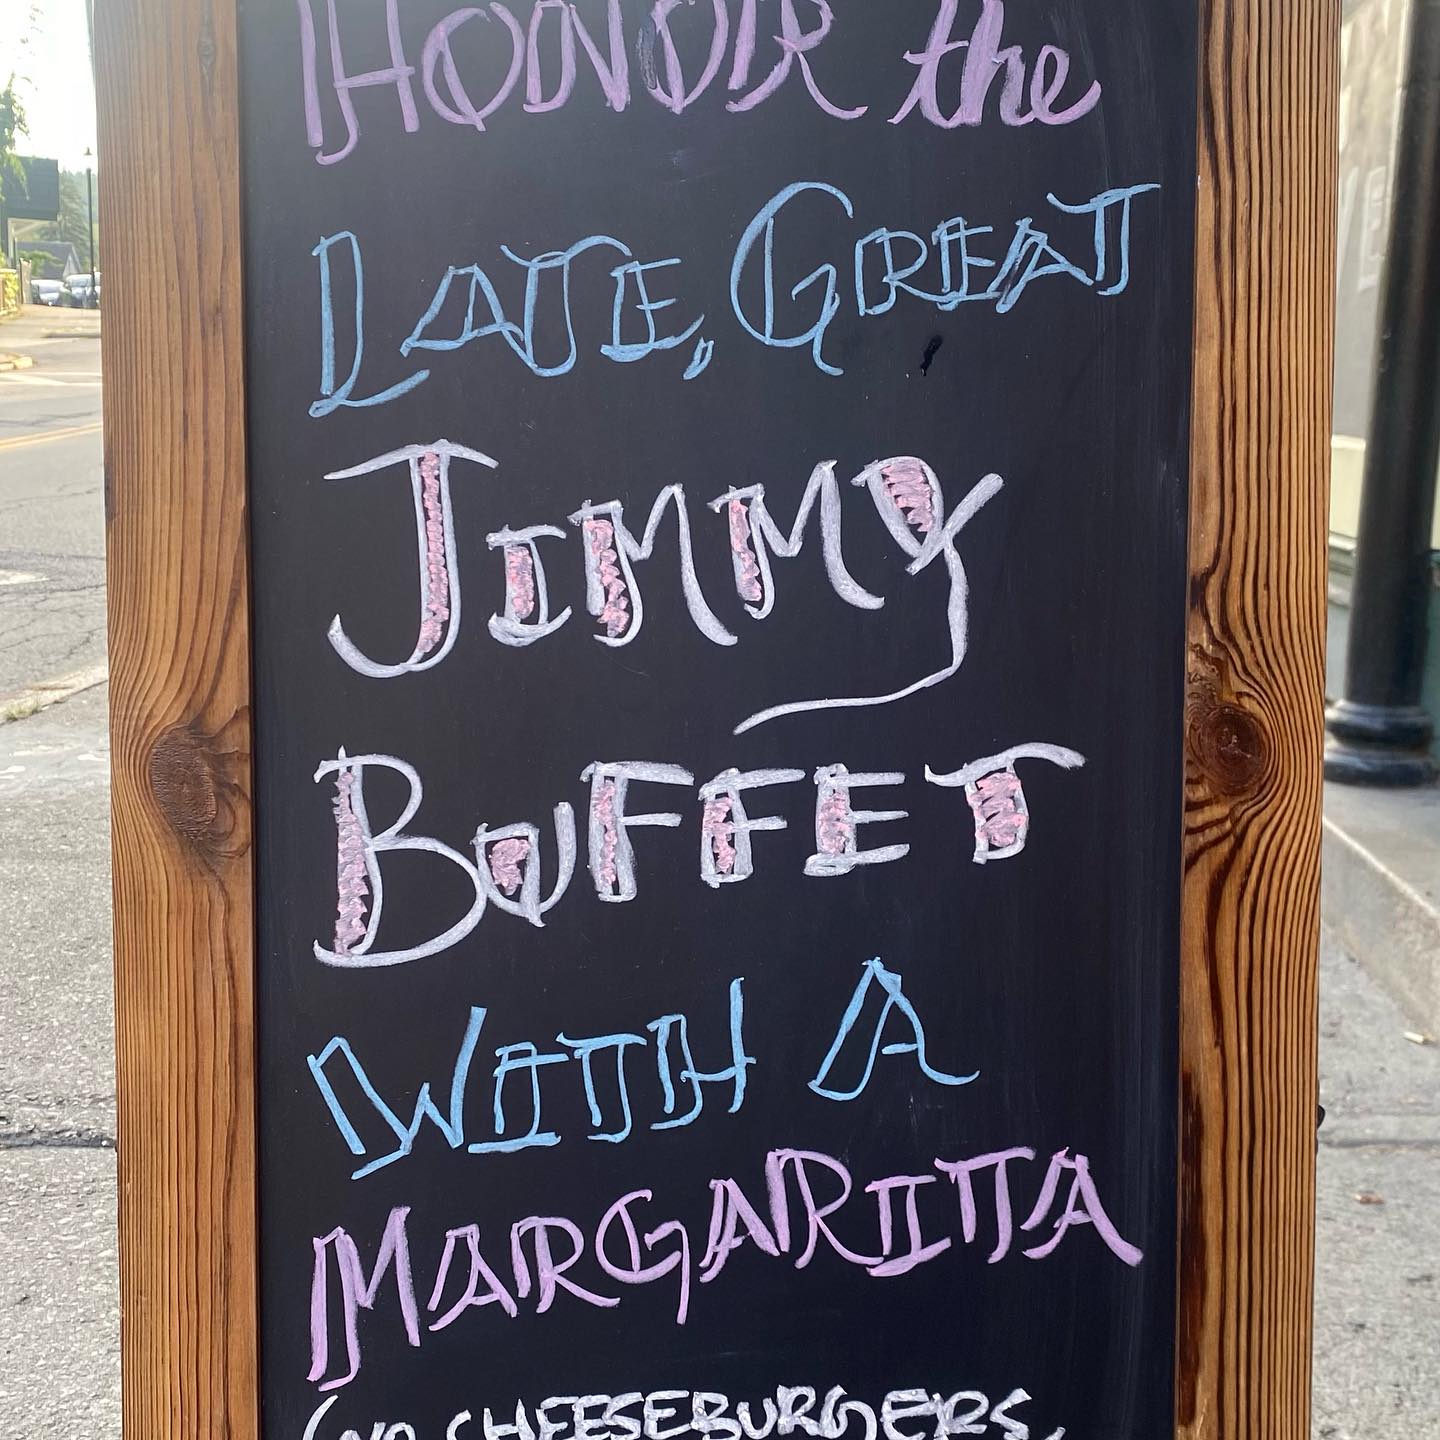 HONOR the
LATE, GREAT
JIMMY
BUFFET
WITH A
MARGARITA
(NO CHEESEBURGERS,